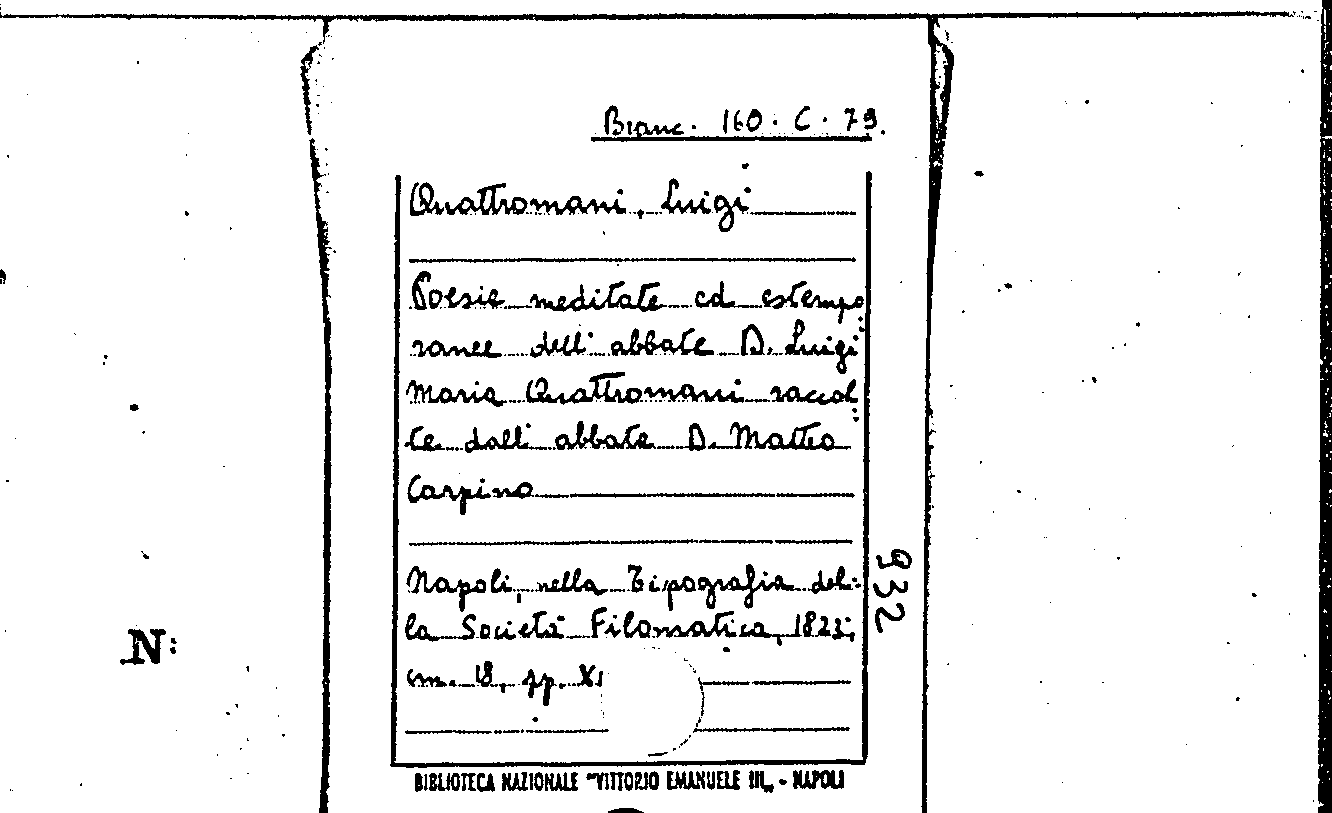 Branc. 160. C. 79.
Quattromani, Luigi
Poesie meditate ed estempo
ranee dell' abbate D. Luigi
Maria Quattromani raccol
te dall' abbate D. Matteo
Carpino
Napoli, nella Tipografia del-
la Società Filomatica, 1823,
cm. 18, pp.
932
N:
BIBLIOTECA NAZIONALE "VITTORIO EMANUELE III„ - NAPOLI